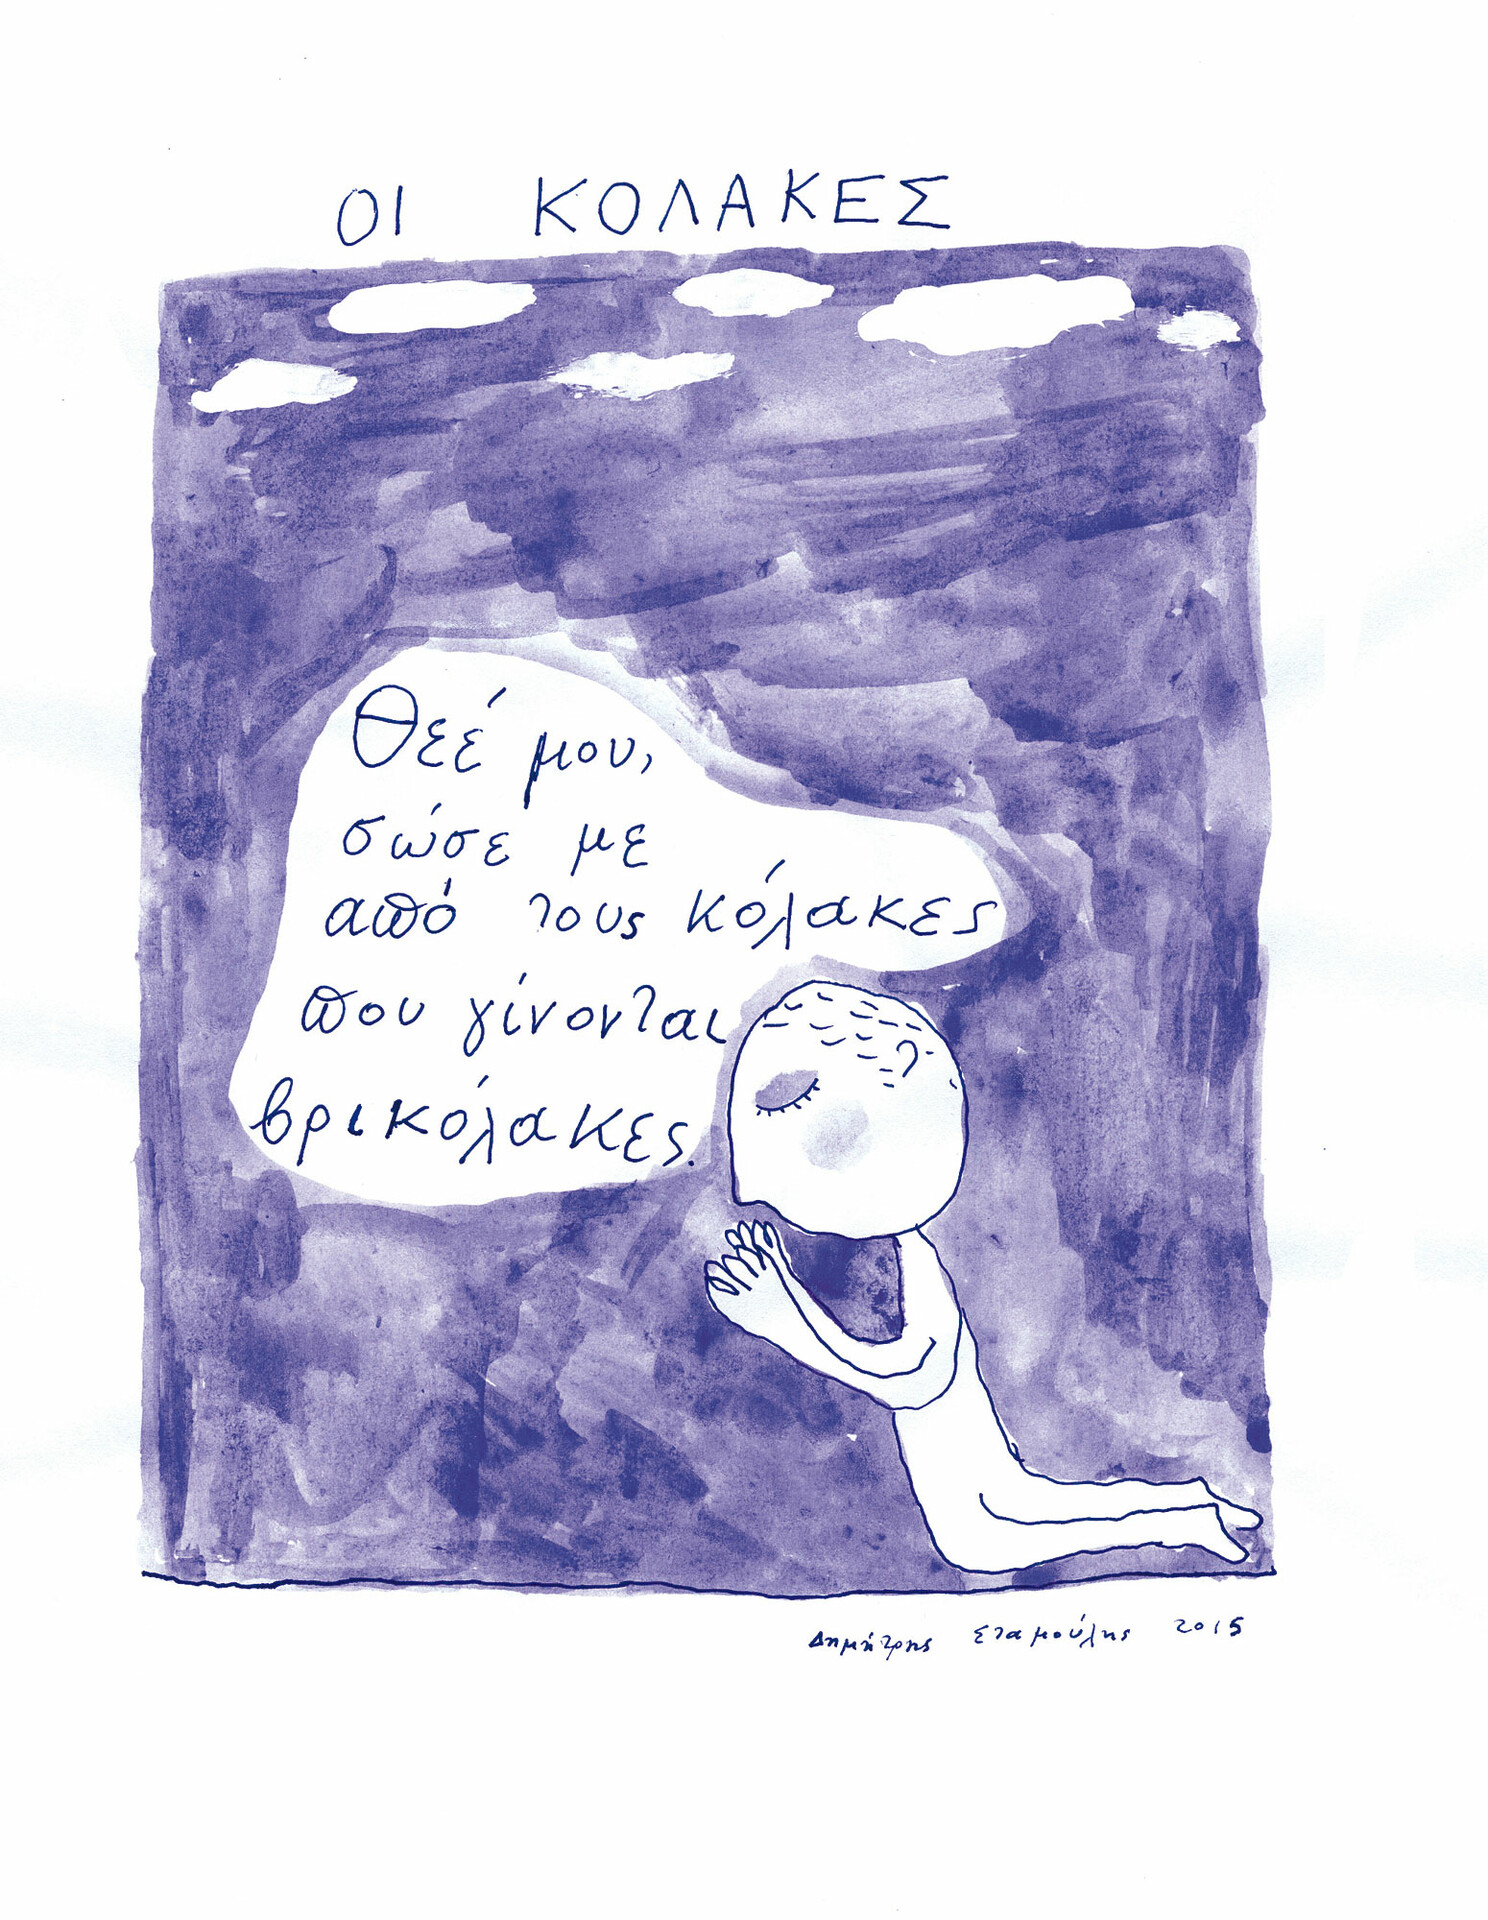 ΟΙ ΚΟΛΑΚΕΣ
Θεέ μου,
σώσε με
από τους κόλακες
που γίνονται
βρικόλακες.
Δημήτρης Σταμούλης 2015